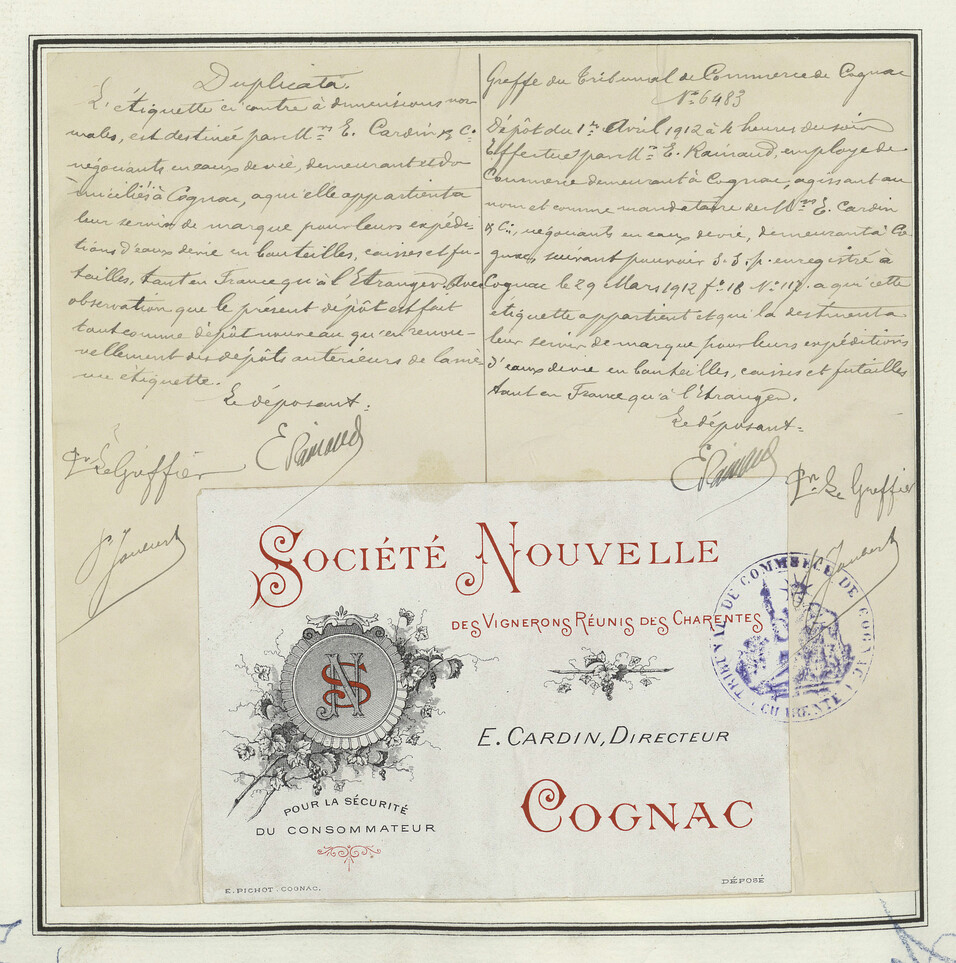 Duplicata.
L'étiquette ci contre à dimensions nor-
males, est destinée par Mrs E. Cardin & Cie
négociants en eaux de vie, demeurant et do
miciliés à Cognac, à qui elle appartient a
leur servir de marque pour leurs expédi-
tions d'eaux de vie en bouteilles, caisses et fu-
tailles, tant en France qu'à l'Etranger. Avec
observation que le présent dépôt est fait
tant comme dépôt nouveau qu'en renou-
vellement des dépôts antérieurs de la mê-
me étiquette.
Le déposant:
E Rainaud
Pr Le Greffier
Joubert
Greffe du Tribunal de Commerce de Cognac
No 6483
Dépôt du 1er Avril 1912 à 4 heures du soir
Effectué par Mr E. Rainaud, employé de
Commerce demeurant à Cognac, agissant au
nom et comme mandataire de Mrs E. Cardin
& Cie, négociants en eaux de vie, demeurant à Co
gnac, suivant pouvoir s.s.p. enregistré à
Cognac le 29 Mars 1912 fo 18 No 117. a qui cette
étiquette appartient et qui la destinent a
leur servir de marque pour leurs expéditions
d'eaux de vie en bouteilles, caisses et futailles
tant en France qu'à l'Etranger.
Le déposant:
E Rainaud
Pr Le Greffier
Joubert
SOCIÉTÉ NOUVELLE
DES VIGNERONS RÉUNIS DES CHARENTES
SN
E. CARDIN, DIRECTEUR
COGNAC
POUR LA SÉCURITÉ
DU CONSOMMATEUR
E. PICHOT. COGNAC.
DÉPOSÉ
TRIBUNAL DE COMMERCE DE COGNAC
(CHARENTE)